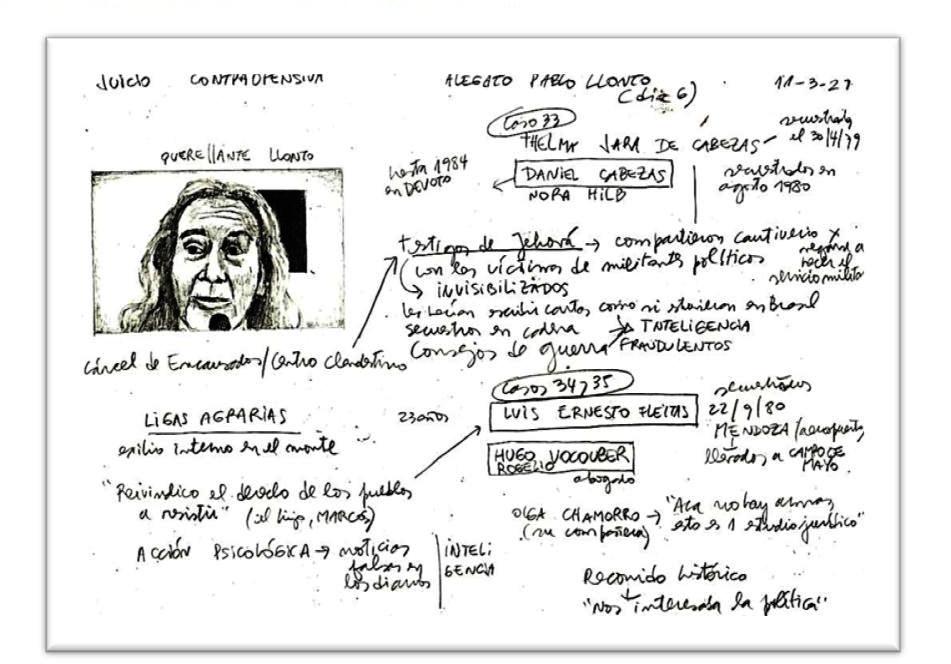 JUICIO CONTRAOFENSIVA
ALEGATO PABLO LLONTO
(día 6)
11-3-21
QUERELLANTE LLONTO
Caso 33
THELMA JARA DE CABEZAS
secuestrada
el 30/4/79
hasta 1984
en DEVOTO
DANIEL CABEZAS
NORA HILB
secuestrados en
agosto 1980
testigos de Jehová → compartieron cautiverio x
con las víctimas de militantes políticos
negarse a
hacer el
servicio militar
→ INVISIBILIZADOS
les hacían escribir cartas como si estuvieran en Brasil
secuestros en cadena → INTELIGENCIA
Consejos de guerra FRAUDULENTOS
cárcel de Encausados/Centro Clandestino
Casos 34 y 35
LIGAS AGRARIAS
exilio interno en el monte
23 años
LUIS ERNESTO FLEITAS
secuestrados
22/9/80
MENDOZA/aeropuerto
llevados a CAMPO DE
MAYO
HUGO VOCOUBER
ROGELIO
abogado
"Reivindico el derecho de los pueblos
a resistir" (el hijo, MARCOS)
OLGA CHAMORRO → "Acá no hay armas,
(su compañera) esto es 1 estudio jurídico"
ACCIÓN PSICOLÓGICA → noticias
falsas en
los diarios
INTELI
GENCIA
Recorrido histórico
"Nos interesaba la política"